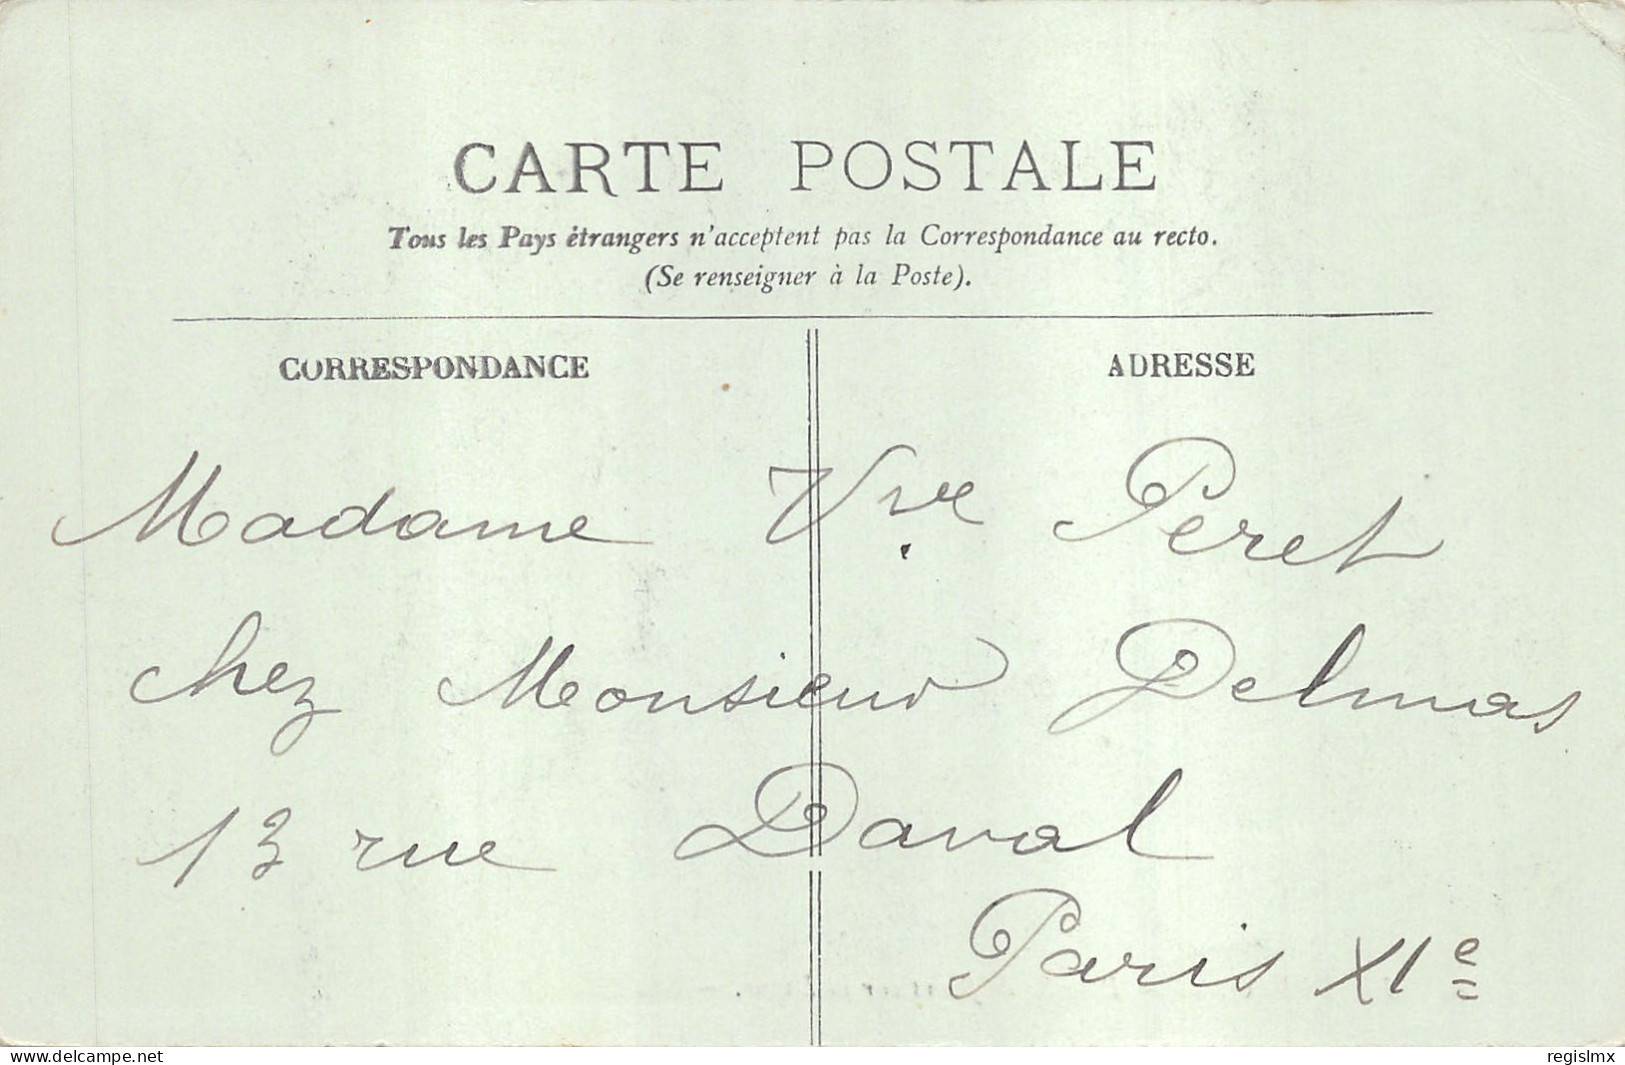 CARTE POSTALE
Tous les Pays étrangers n'acceptent pas la Correspondance au recto.
(Se renseigner à la Poste).
CORRESPONDANCE
ADRESSE
Madame Vve Peret
chez Monsieur Delmas
13 rue Daval
Paris XIe
www.delcampe.net
regislmx